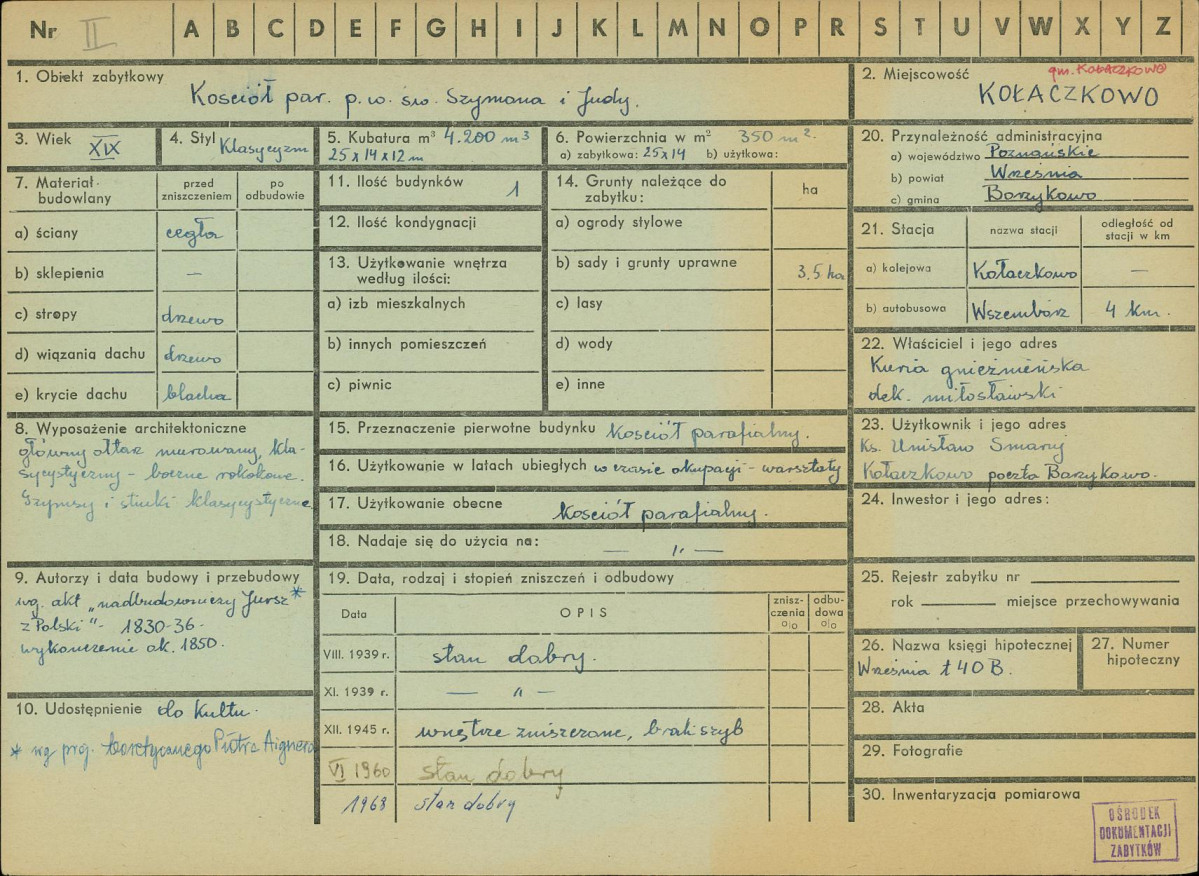 Nr II A B C D E F G H I J K L M N O P R S T U V W X Y Z
1. Obiekt zabytkowy
Kościół par. p.w. św. Szymona i Judy.
2. Miejscowość
gm. KOŁACZKOWO
KOŁACZKOWO
3. Wiek XIX
4. Styl Klasycyzm
5. Kubatura m³ 4.200 m³
25 x 14 x 12 m
6. Powierzchnia w m² 350 m².
a) zabytkowa: 25 x 14 b) użytkowa:
7. Materiał budowlany
przed zniszczeniem
po odbudowie
a) ściany cegła
b) sklepienia —
c) stropy drzewo
d) wiązania dachu drzewo
e) krycie dachu blacha
8. Wyposażenie architektoniczne
główny ołtarz murowany, kla-
sycystyczny - boczne rokokowe.
Gzymsy i stiuki klasycystyczne
9. Autorzy i data budowy i przebudowy
wg. akt „nadbudowniczy Jursz *
z Polski" - 1830-36 -
wykończenie ok. 1850.
10. Udostępnienie do kultu.
* wg proj. teoretycznego Piotra Aignera
11. Ilość budynków 1
12. Ilość kondygnacji
13. Użytkowanie wnętrza
według ilości:
a) izb mieszkalnych
b) innych pomieszczeń
c) piwnic
14. Grunty należące do
zabytku:
ha
a) ogrody stylowe
b) sady i grunty uprawne 3.5 ha
c) lasy
d) wody
e) inne
15. Przeznaczenie pierwotne budynku Kościół parafialny.
16. Użytkowanie w latach ubiegłych w czasie okupacji - warsztaty
17. Użytkowanie obecne Kościół parafialny.
18. Nadaje się do użycia na: — „ —
19. Data, rodzaj i stopień zniszczeń i odbudowy
Data
OPIS
znisz-
czenia
o/o
odbu-
dowa
o/o
VIII. 1939 r. stan dobry.
XI. 1939 r. — „ —
XII. 1945 r. wnętrze zniszczone, brak szyb
VI 1960 stan dobry
1968 stan dobry
20. Przynależność administracyjna
a) województwo Poznańskie
b) powiat Września
c) gmina Borzykowo
21. Stacja
nazwa stacji
odległość od
stacji w km
a) kolejowa Kołaczkowo —
b) autobusowa Wszembórz 4 km.
22. Właściciel i jego adres
Kuria gnieźnieńska
dek. miłosławski
23. Użytkownik i jego adres
Ks. Unisław Smaruj
Kołaczkowo poczta Borzykowo.
24. Inwestor i jego adres:
25. Rejestr zabytku nr
rok miejsce przechowywania
26. Nazwa księgi hipotecznej
Września t 40 B.
27. Numer
hipoteczny
28. Akta
29. Fotografie
30. Inwentaryzacja pomiarowa
OŚRODEK
DOKUMENTACJI
ZABYTKÓW